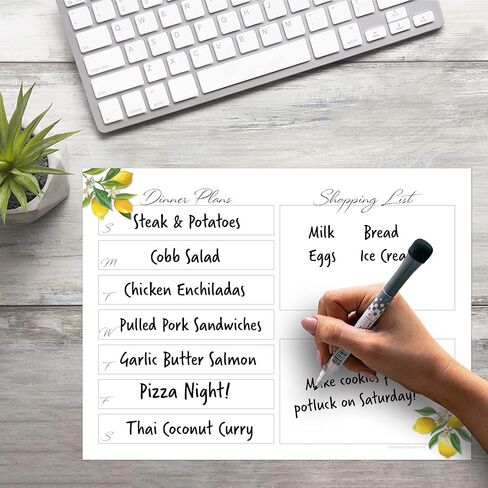 Dinner Plans
S Steak & Potatoes
M Cobb Salad
T Chicken Enchiladas
W Pulled Pork Sandwiches
T Garlic Butter Salmon
F Pizza Night!
S Thai Coconut Curry
Shopping List
Milk Bread
Eggs Ice
Make cookies
potluck on Saturday!